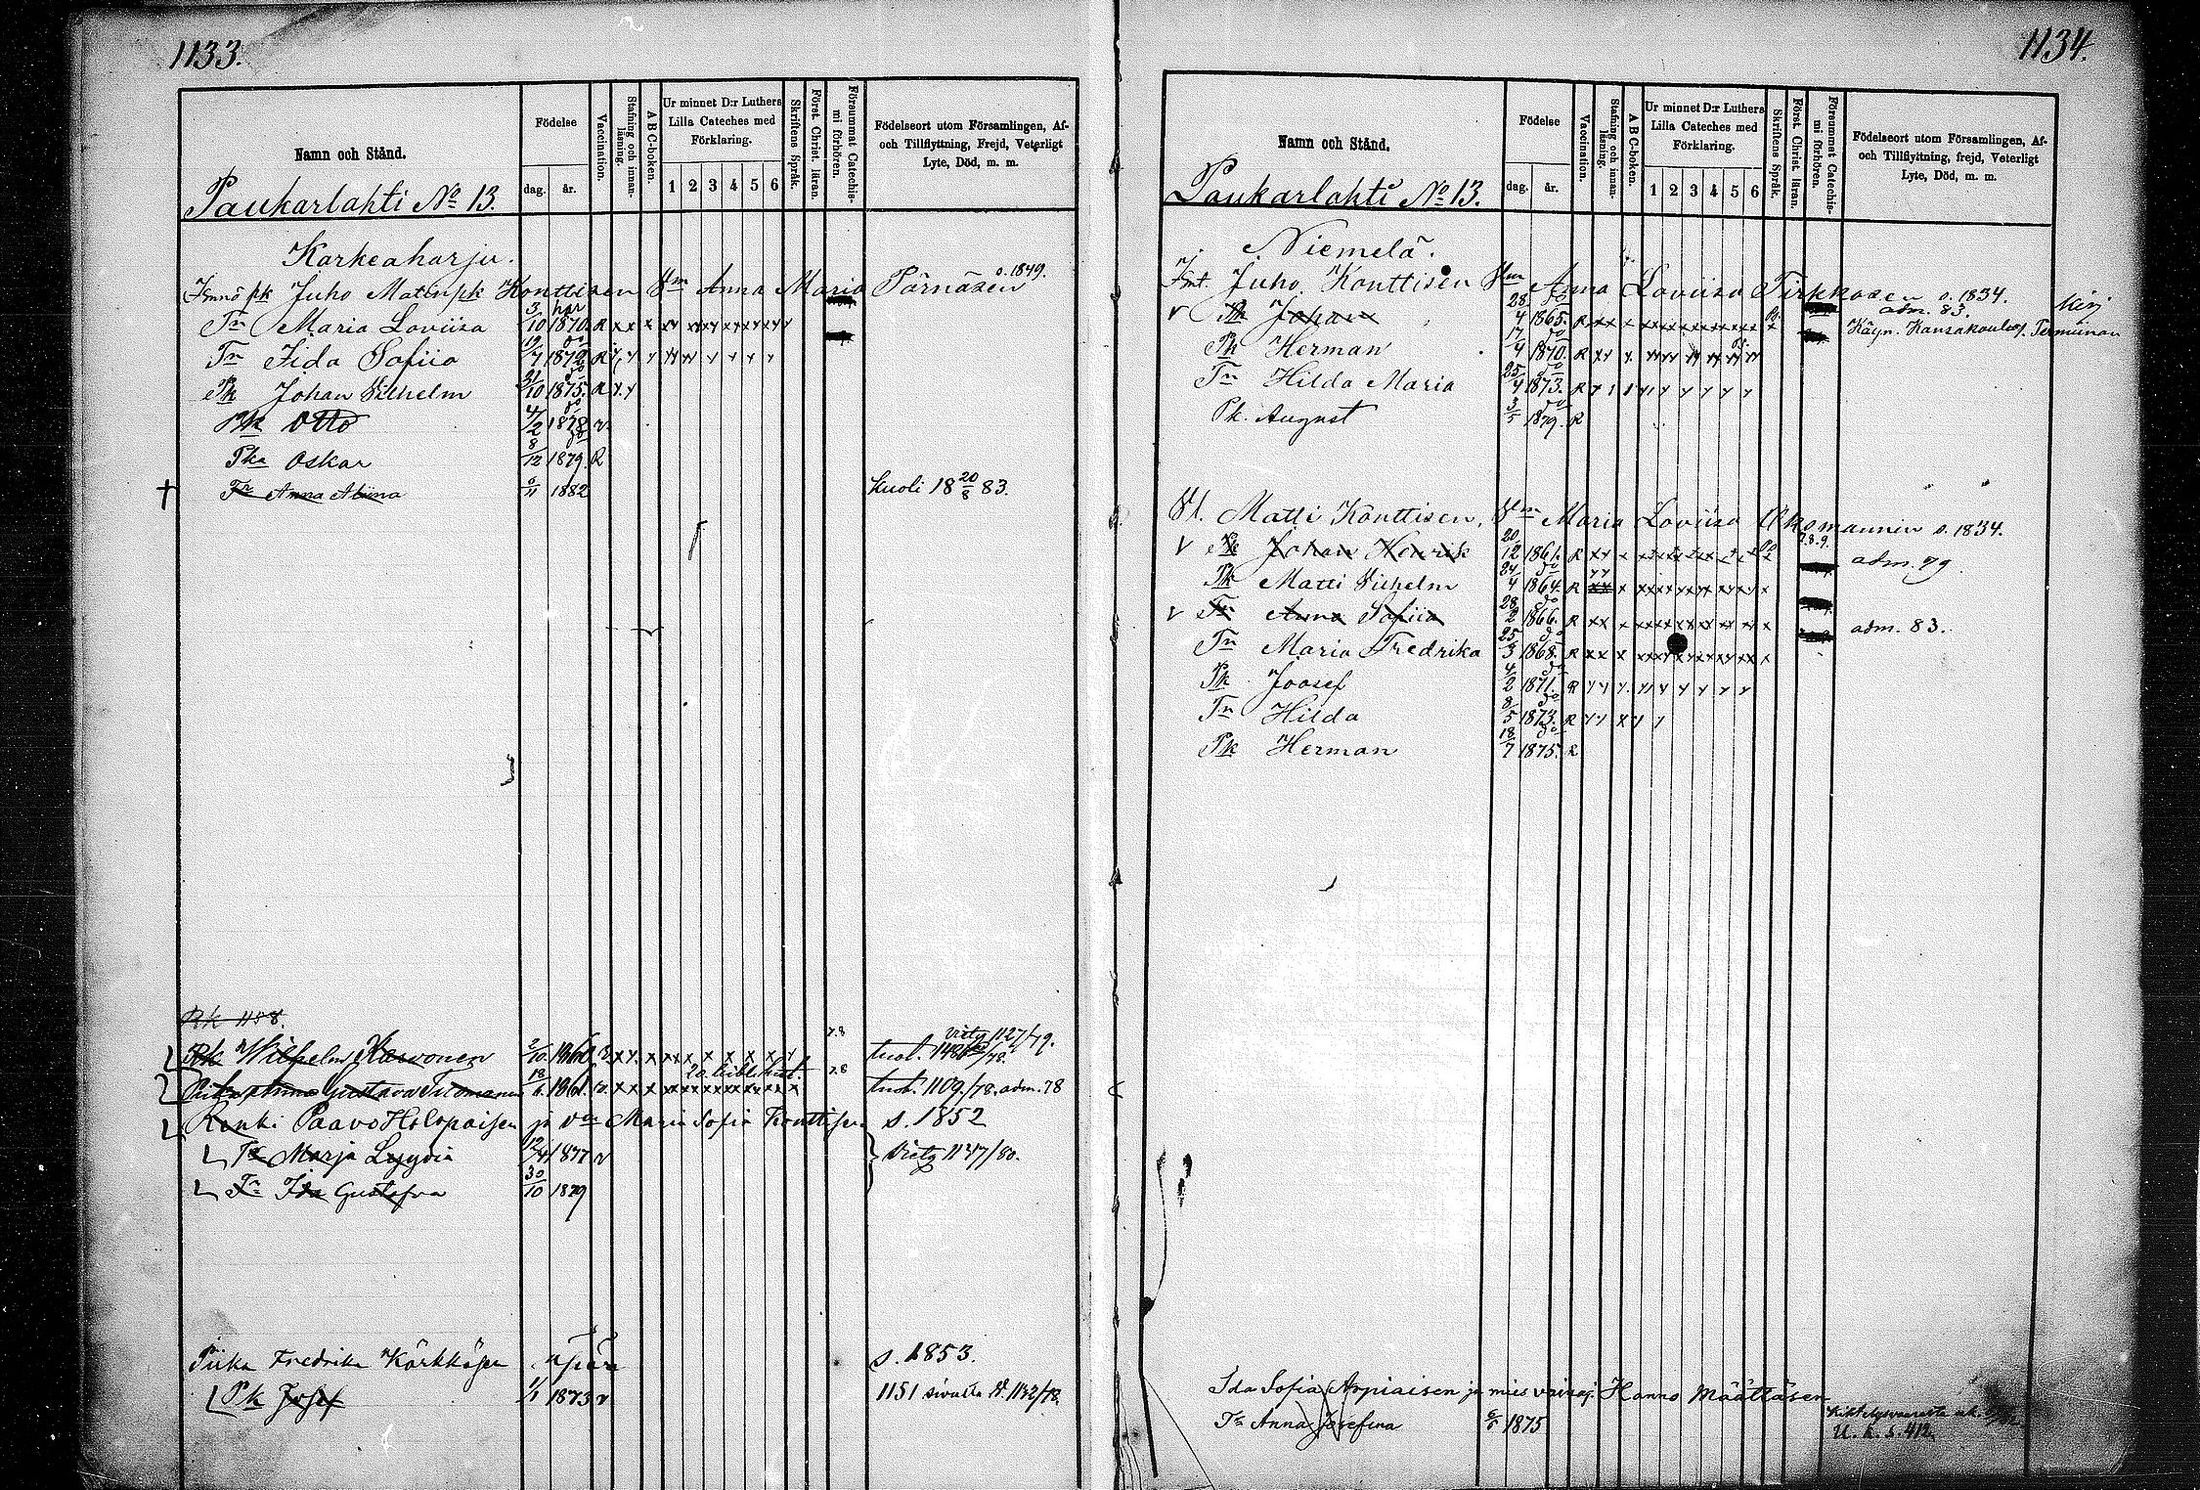 1133.
Namn och Stånd.
Födelse
dag.
år.
Vaccination.
Stafning och innan-läsning.
A B C-boken.
Ur minnet D:r Luthers
Lilla Cateches med
Förklaring.
1 2 3 4 5 6
Skriftens Språk.
Först. Christ. läran.
Försummat Catechis-mi förhören.
Födelseort utom Församlingen, Af-
och Tillflyttning, Frejd, Veterligt
Lyte, Död, m. m.
Paukarlahti No 13.
Karkeaharju.
Juho Matinpk Konttisen Vm Anna Maria Pärnäsen s. 1849.
Tr Maria Loviisa 3/10 1870. R
Tr Iida Sofiia 19/7 1872. R
Pk Johan Vilhelm 21/10 1875. R
Pk Otto 4/2 1878
Pka Oskar 8/12 1879. R
† Tr Anna Aliina 6/11 1882 kuoli 18 20/8 83.
Rk 1188.
Rk Wilhelm 2/10 1860 7.8 tuol.
Piika Anna Gustava 18/6 1861 7.8 tuol. 1109/78. adm. 78
Renki Paavo Holopaisen ja vm Maria Sofia Konttisen s. 1852
Tr Marja Lyydia 12/4 1877
Tr Ida Gustafva 30/10 1879
Piika Fredrika Kärkkäsen äpärä s. 1853.
Pk Josef 1/1 1873 1151 sivulta
1134.
Namn och Stånd.
Födelse
dag.
år.
Vaccination.
Stafning och innan-läsning.
A B C-boken.
Ur minnet D:r Luthers
Lilla Cateches med
Förklaring.
1 2 3 4 5 6
Skriftens Språk.
Först. Christ. läran.
Försummat Catechis-mi förhören.
Födelseort utom Församlingen, Af-
och Tillflyttning, frejd, Veterligt
Lyte, Död, m. m.
Paukarlahti No 13.
Niemelä.
Int. Juho Konttisen Vm Anna Loviisa Tirkkosen s. 1834.
Pk Johan 28/4 1865. R adm. 83.
Pk Herman 17/4 1870. R Käyn. Kansakoulun
Tr Hilda Maria 25/4 1873. R
Pk. August 3/5 1879. R
Vl. Matti Konttisen, Vm Maria Loviisa s. 1834.
Pk Johan Henrik 20/12 1861. R 7.8.9. adm. 79.
Pk Matti Vilhelm 24/4 1864. R
Tr Anna Sofiia 28/2 1866. R adm. 83.
Tr Maria Fredrika 25/3 1868. R
Pk Joosef 4/2 1871. R
Tr Hilda 8/5 1873. R
Pk Herman 18/7 1875. R
Ida Sofia Arpiaisen ja mies Hanno Määttäsen
Tr Anna Josefina 1875